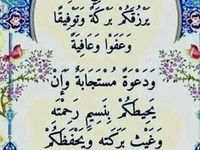 يَرْزُقَكُمْ بَرَكَةً وَتَوْفِيقًا
وَعَفْوًا وَعَافِيَةً
وَدَعْوَةً مُسْتَجَابَةً وَإَنْ
يُحِيطَكُمْ بِنَسِيمِ رَحْمَتِهِ
وَغَيْثِ بَرَكَتِهِ وَيَحْفَظَكُمْ